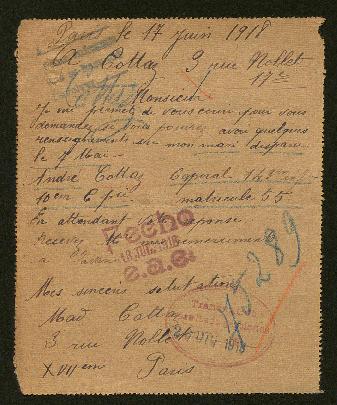 Paris le 17 Juin 1918
A Cottaz 3 rue Nollet
17e
Monsieur
Je me permets de vous ecrire pour vous
demander si vous pouvez avoir quelques
renseignements sur mon mari disparu
le 1 Mai -
André Cottaz Caporal 148
10em Cie matricule 55
En attendant votre réponse
Recevez
à
Mes sincères salutations
Mad Cottaz
3 rue Nollet
XVII em Paris
Recho
18 JUIL 1918
s.a.c.
Trans
24 JUIN 1918
75289